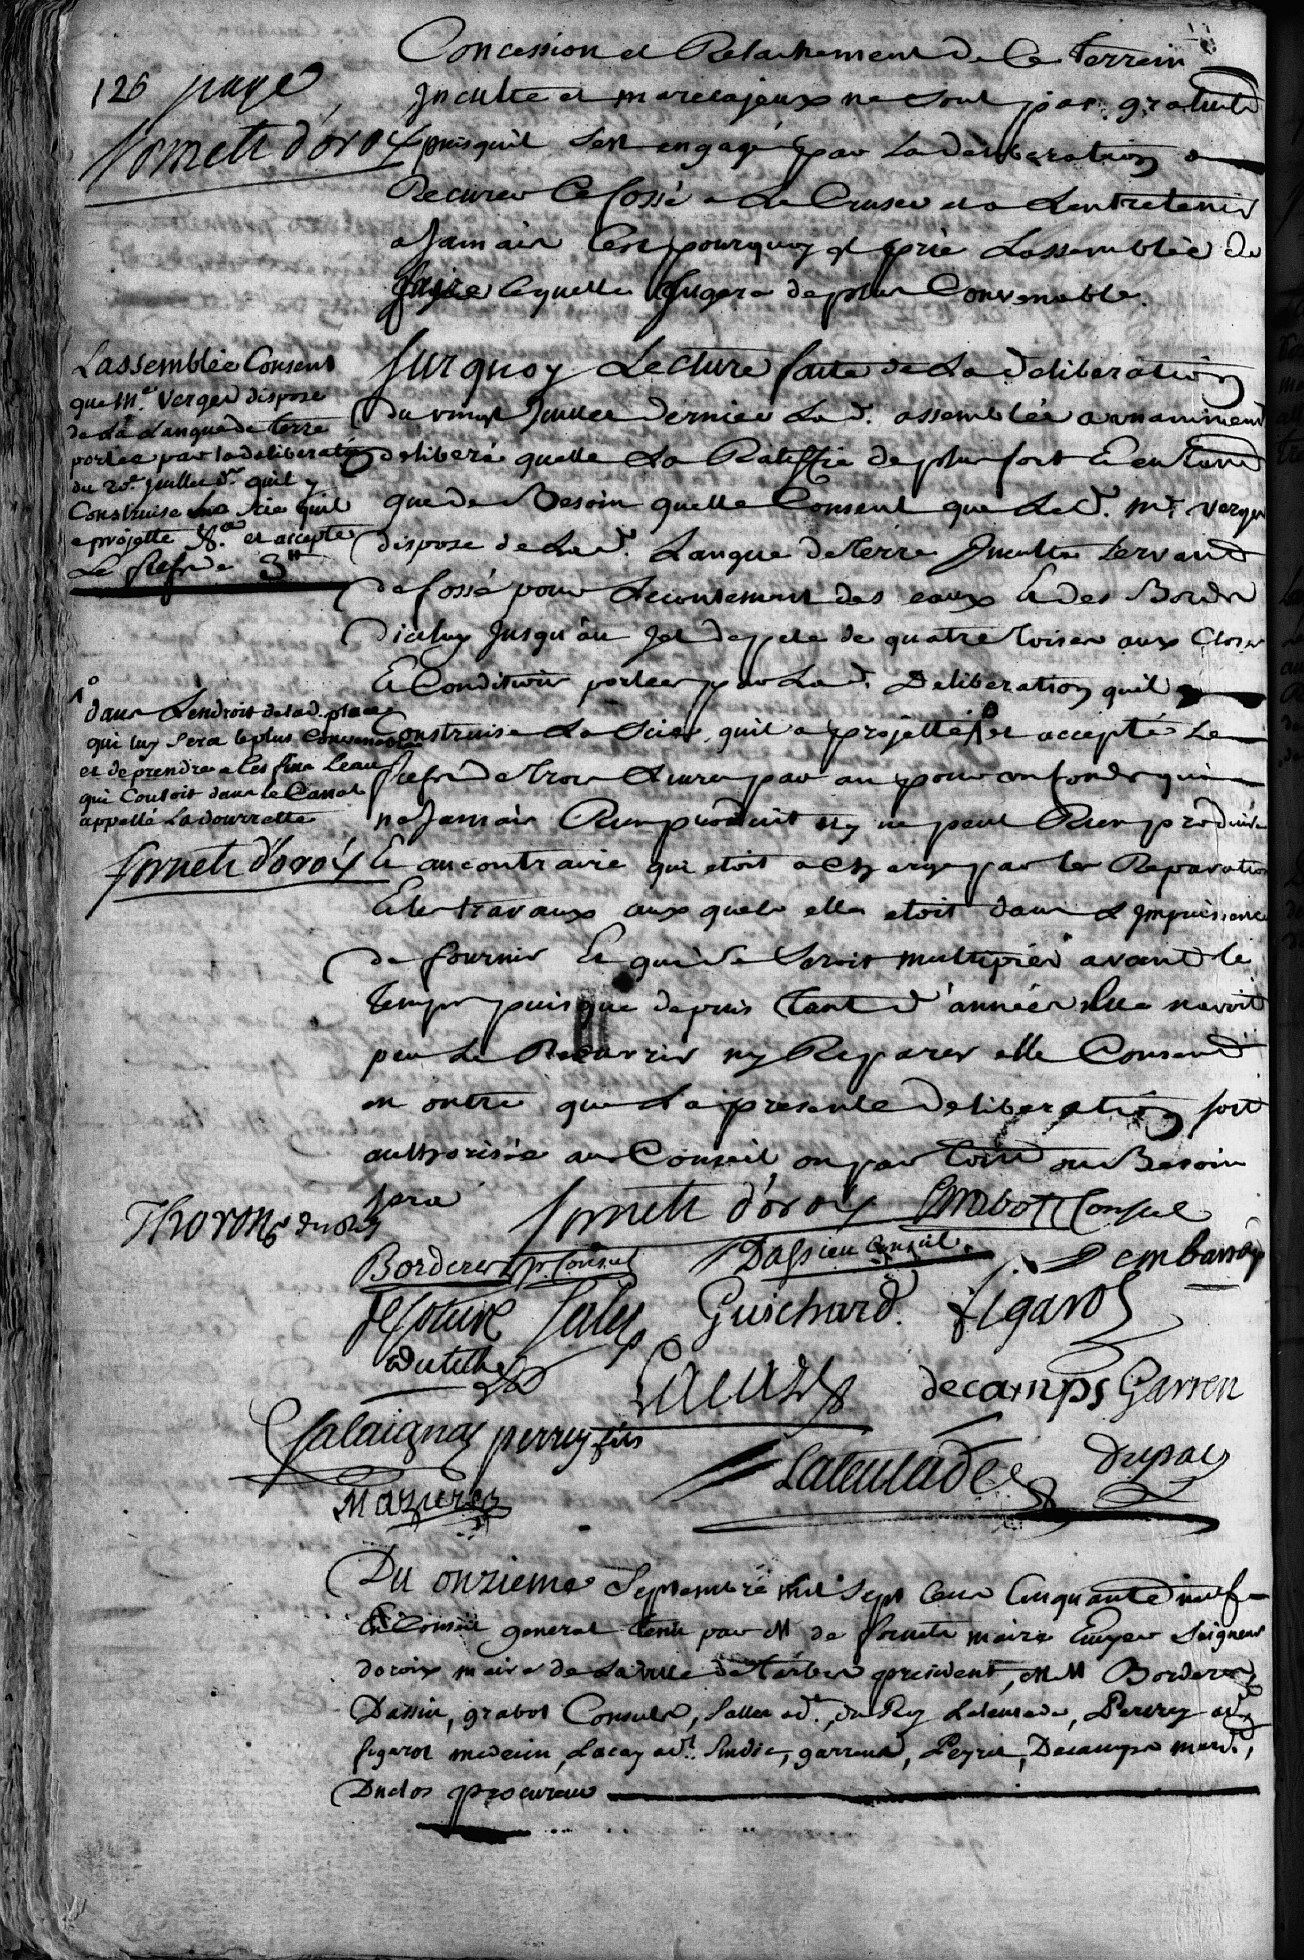 126 page
fornets d'oroix
Concession et Relachement de Ce Terrein
Inculte et marecajeux ne sont pas gratuits
puisquil sest engagé par La deliberation a
Recurer Ce fossé a Le Cruser et a Lentretenir
a Jamais Cest pourquoy il prie Lassemblée de
faire Ce quelle Jugera de plus Convenable.
Lassemblée Consent
que Mr. Verger dispose
de La Langue de terre
portée par la deliberation
du 20e. Juillet dr. quil y
Construise la Scie quil
a projetté &a et accepte
Le fief de 3#
Sur quoy Lecture faite de La deliberation
du vingt Juillet dernier Lad. assemblée a unanimement
deliberé quelle La Ratiffie de plus fort Et en tant
que de Besoin quelle Consent que Led. Mr. Verger
dispose de Lad. Langue de terre Inculte servant
de fossé pour Lecoulement des eaux Et des Bords
dicelluy Jusqu'au Jet de pele de quatre toises aux Closes
Et Conditions portées par Lad. Deliberation quil
Construise La Scie, quil a projetté et accepté Le
fief de trois Livres par an pour un fonds qui
na Jamais Rien produit ny ne peut Rien produire
Et au contraire qui etoit a charge par les Reparations
Et les travaux aux quels elle etoit dans L'impuissance
de fournir Et qui se seroit multiplié avant le
temps puisque depuis tant d'années elle navoit
peu Le Recurer ny Reparer elle Consent
en outre que La presente deliberation soit
authorisée au Conseil ou par tout ou Besoin
sera
1°
dans Lendroit de lad. place
qui luy Sera le plus Convenable
et de prendre a Ces fins Leau
qui Couloit dans le Canal
appellé La dourrette
fornets d'oroix
fornets d'oroix Grabot Consul
Thoron
Borderes pr. Consul Dassieu Consul. Dembarrere
Salles Guichard. figarol
Lacay decamps Garren
Salaignac perrey fils
Lateulade Dupac
Mazieres
Du onzieme Septembre mil Sept Cens Cinquante neuf
En Conseil general tenu par M de fornets maire Ecuyer Seigneur
doroix maire de La ville de tarbes president, MM Borderes
Dassieu, grabot Consuls, Salles ad.t, du Roy Lateulade, Perrey
figarol medecin, Lacay ad.t Sindic, garrens, Peyret, Decamps
Duclos procureur